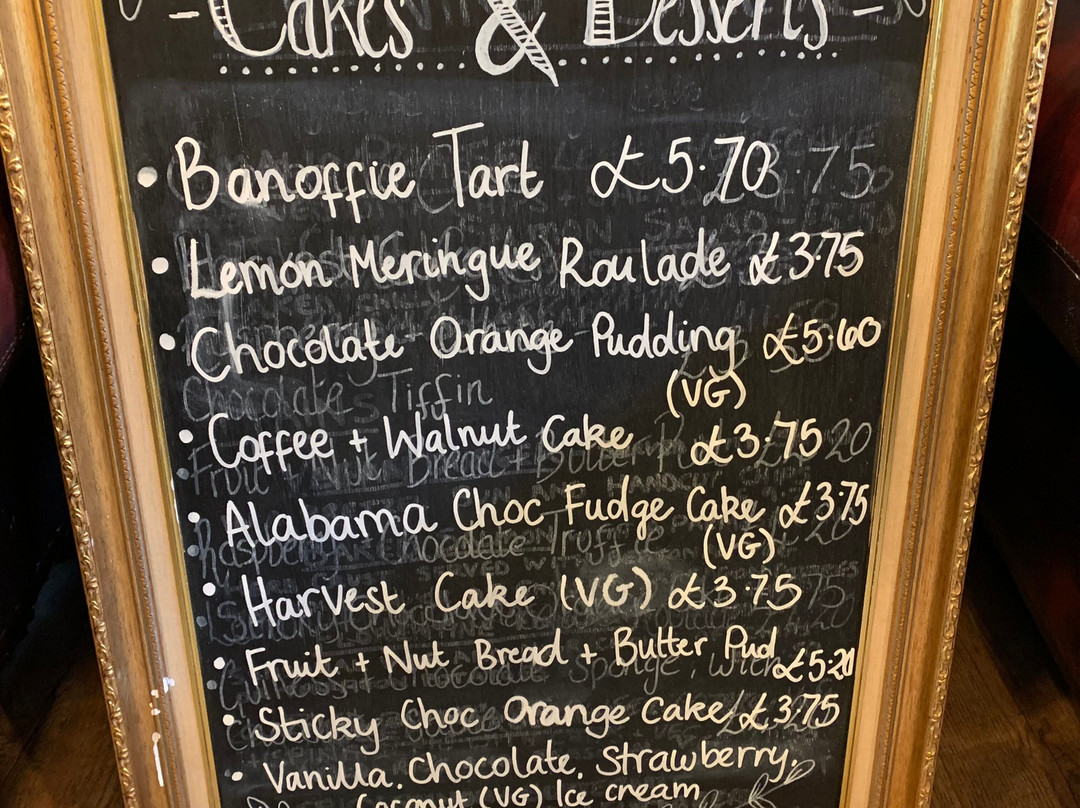 - Cakes & Desserts -
• Banoffie Tart £5.70
• Lemon Meringue Roulade £3.75
• Chocolate Orange Pudding £5.60
(VG)
• Coffee + Walnut Cake £3.75
• Alabama Choc Fudge Cake £3.75
(VG)
• Harvest Cake (VG) £3.75
• Fruit + Nut Bread + Butter Pud £5.20
• Sticky Choc Orange Cake £3.75
• Vanilla, Chocolate, Strawberry,
Coconut (VG) Ice cream